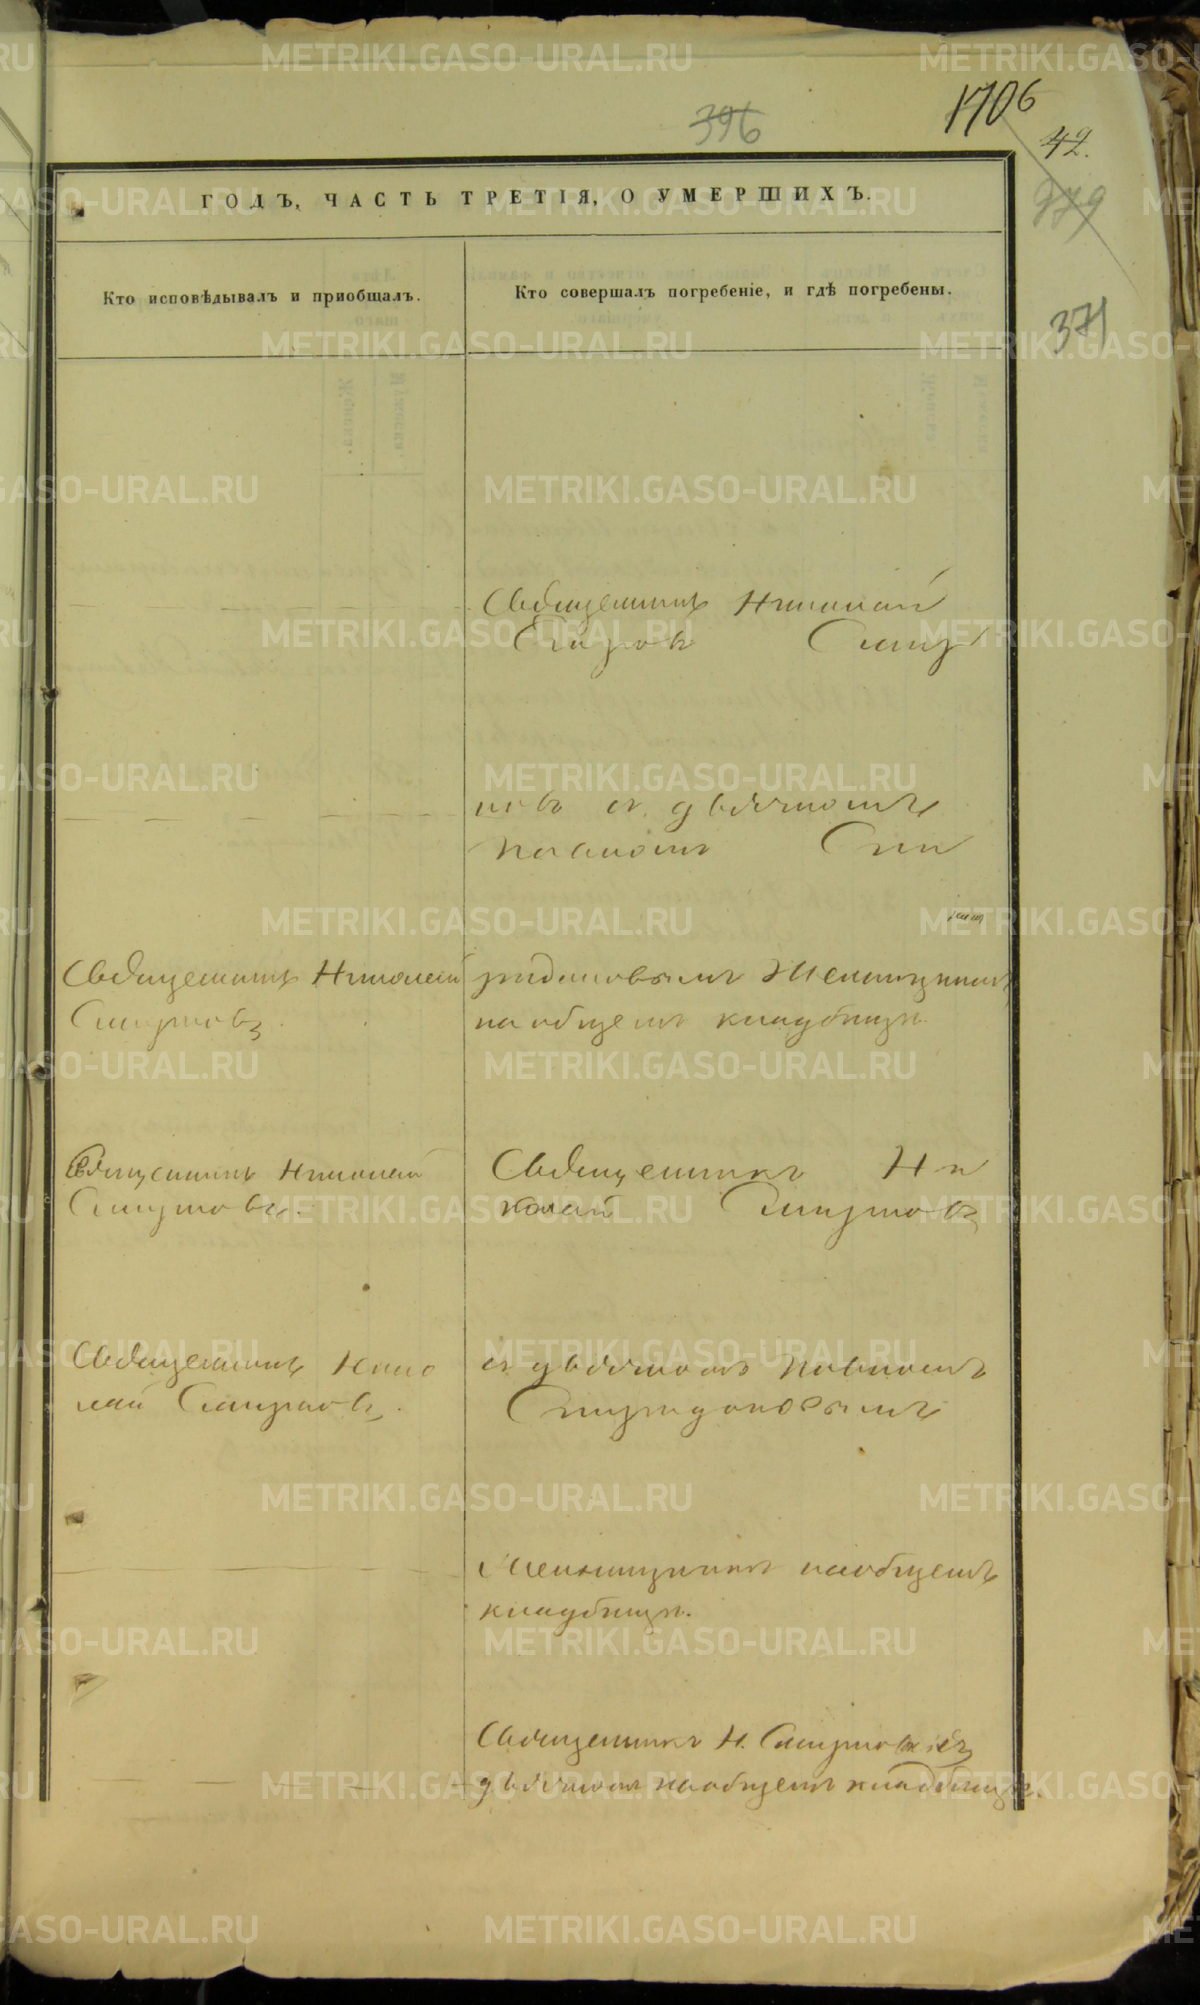 396
1706
42.
979
371
ГОДЪ, ЧАСТЬ ТРЕТІЯ, О УМЕРШИХЪ.
Кто исповѣдывалъ и приобщалъ.
Кто совершалъ погребеніе, и гдѣ погребены.
Священникъ Николай
Смир
новъ съ дьячкомъ
Павломъ Спи
Священникъ Николай
Смирновъ.
ридоновымъ
на общемъ кладбищѣ.
Священникъ Николай
Смирновъ.
Священникъ Ни
колай Смирновъ
Священникъ Нико
лай Смирновъ.
съ дьячкомъ Павломъ
Спиридоновымъ
на общемъ
кладбищѣ.
Священникъ Н. Смирновъ съ
дьячкомъ на общемъ кладбищѣ.
METRIKI.GASO-URAL.RU